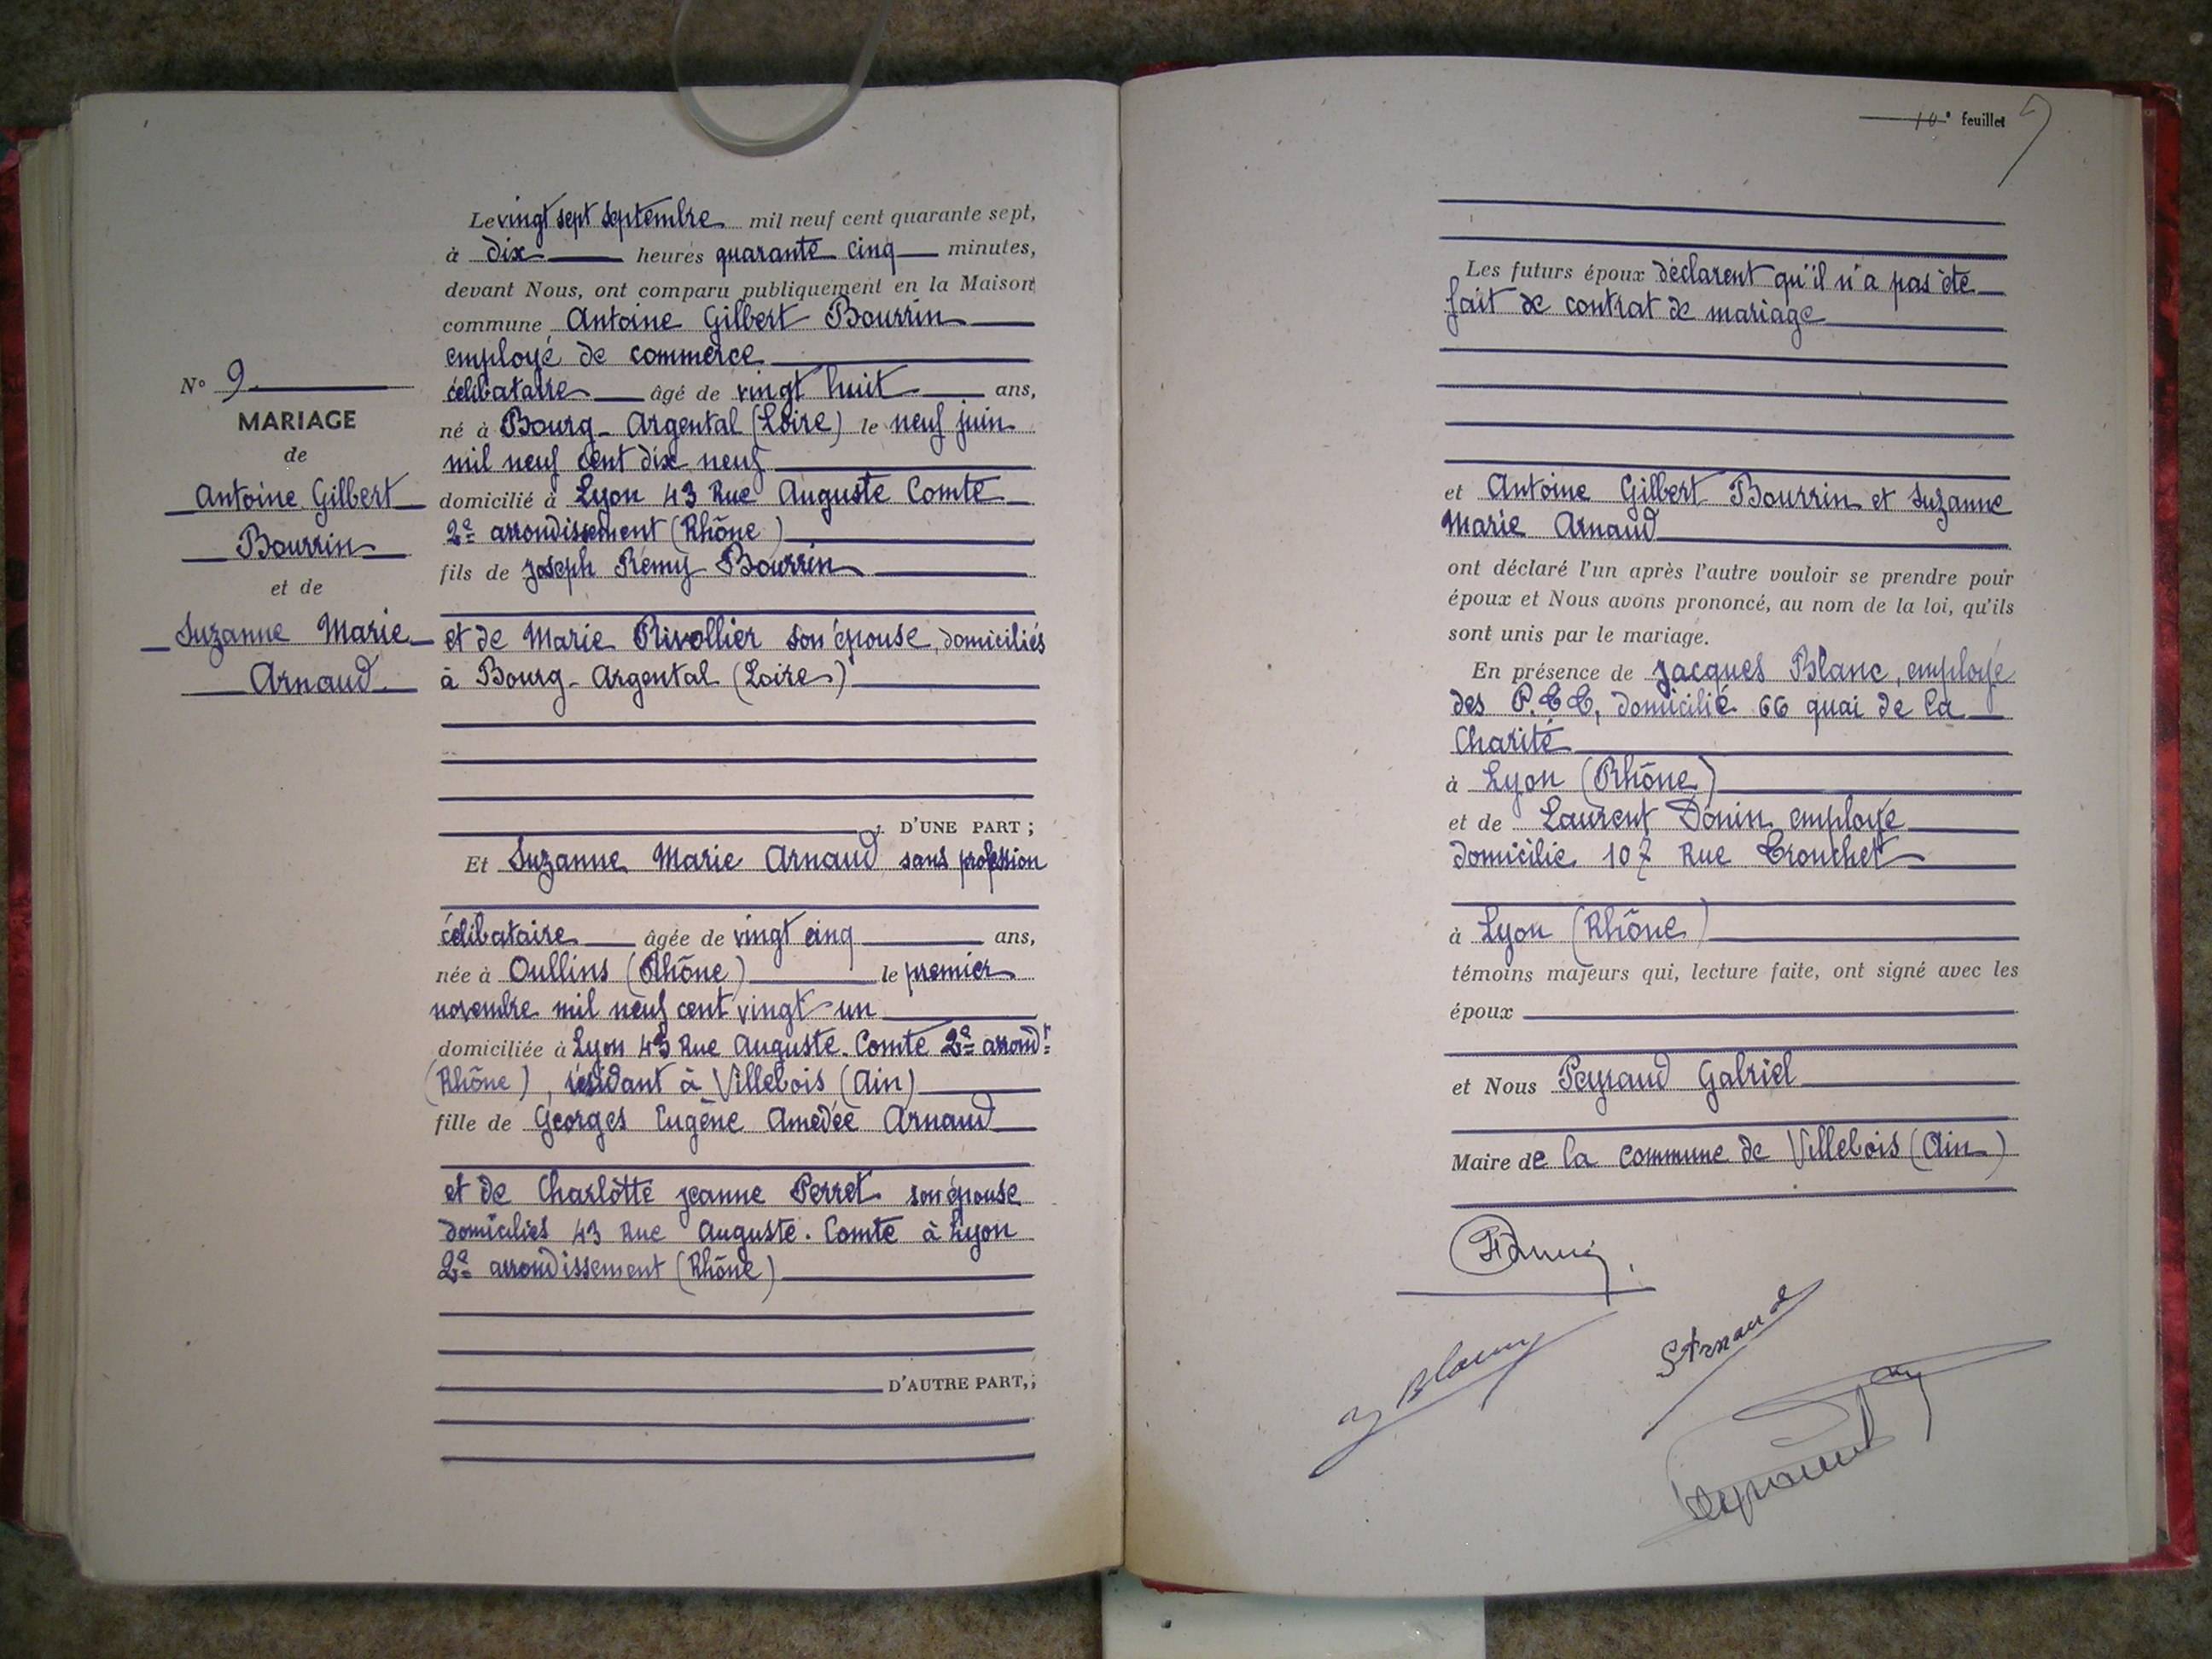 N° 9
MARIAGE
de
Antoine Gilbert
Bourrin
et de
Suzanne Marie
Arnaud
Le vingt sept septembre mil neuf cent quarante sept,
à dix heures quarante cinq minutes,
devant Nous, ont comparu publiquement en la Maison
commune Antoine Gilbert Bourrin
employé de commerce
célibataire âgé de vingt huit ans,
né à Bourg-Argental (Loire) le neuf juin
mil neuf cent dix neuf
domicilié à Lyon 43 Rue Auguste Comte
2e arrondissement (Rhône)
fils de Joseph Rémy Bourrin
et de Marie Rivollier son épouse, domiciliés
à Bourg-Argental (Loire)
D'UNE PART ;
Et Suzanne Marie Arnaud sans profession
célibataire âgée de vingt cinq ans,
née à Oullins (Rhône) le premier
novembre mil neuf cent vingt un
domiciliée à Lyon 43 Rue Auguste. Comte 2e arrondt
(Rhône), résidant à Villebois (Ain)
fille de Georges Eugène Amédée Arnaud
et de Charlotte Jeanne Perret son épouse
domiciliés 43 Rue Auguste. Comte à Lyon
2e arrondissement (Rhône)
D'AUTRE PART,;
10e feuillet
Les futurs époux déclarent qu'il n'a pas été
fait de contrat de mariage
et Antoine Gilbert Bourrin et Suzanne
Marie Arnaud
ont déclaré l'un après l'autre vouloir se prendre pour
époux et Nous avons prononcé, au nom de la loi, qu'ils
sont unis par le mariage.
En présence de Jacques Blanc, employé
des P.T.T, domicilié 66 quai de la
Charité
à Lyon (Rhône)
et de Laurent Donin employé
domicilié 107 Rue Tronchet
à Lyon (Rhône)
témoins majeurs qui, lecture faite, ont signé avec les
époux
et Nous Peyraud Gabriel
Maire de la commune de Villebois (Ain)
J Blanc
S Arnaud
Peyraud